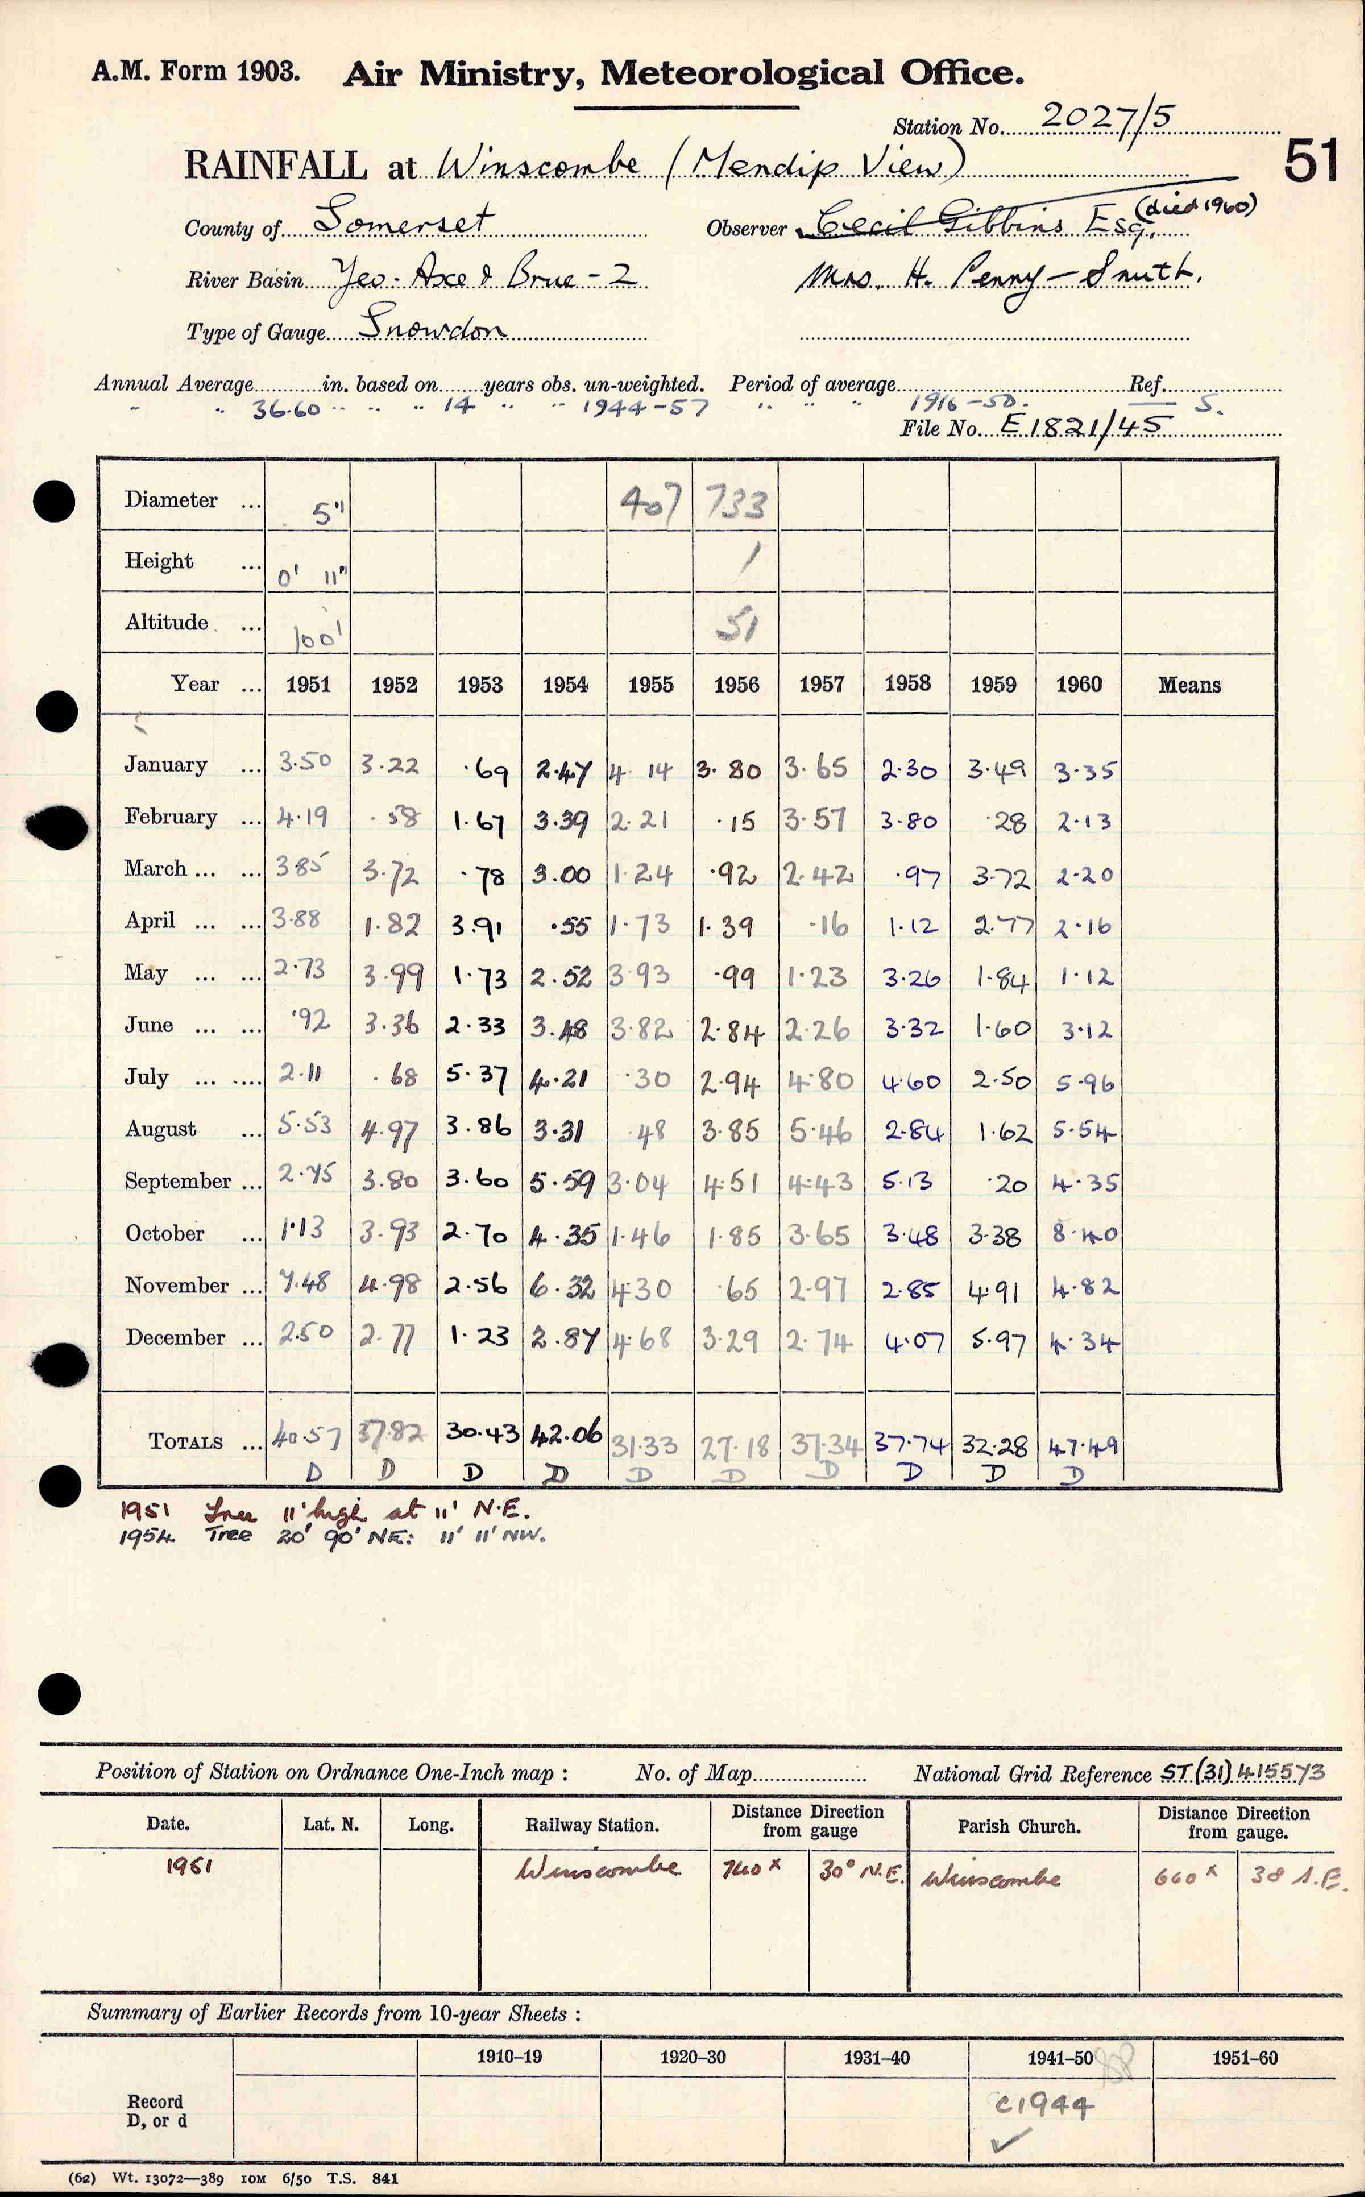 A.M. Form 1903. Air Ministry, Meteorological Office.
Station No. 2027/5
51
RAINFALL at Winscombe (Mendip View)
County of Somerset Observer Cecil Gibbins Esq. (died 1960)
River Basin Yeo. Axe & Brue - 2 Mrs. H. Penny-Smith.
Type of Gauge Snowdon
Annual Average in. based on years obs. un-weighted. Period of average Ref.
- " 36.60 " " " 14 " " 1944-57 " " " 1916-50. S.
File No. E1821/45
Diameter ... 5" 407 733
Height ... 0' 11" 1
Altitude ... 100' 51
Year ... 1951 1952 1953 1954 1955 1956 1957 1958 1959 1960 Means
January ... 3.50 3.22 .69 2.47 4 14 3.80 3.65 2.30 3.49 3.35
February ... 4.19 .58 1.67 3.39 2.21 .15 3.57 3.80 .28 2.13
March ... ... 3 85 3.72 .78 3.00 1.24 .92 2.42 .97 3.72 2.20
April ... ... 3.88 1.82 3.91 .55 1.73 1.39 .16 1.12 2.77 2.16
May ... ... 2.73 3.99 1.73 2.52 3.93 .99 1.23 3.26 1.84 1.12
June ... ... .92 3.36 2.33 3.48 3.82 2.84 2.26 3.32 1.60 3.12
July ... ... 2.11 .68 5.37 4.21 .30 2.94 4.80 4.60 2.50 5.96
August ... 5.53 4.97 3.86 3.31 .48 3.85 5.46 2.84 1.62 5.54
September ... 2.75 3.80 3.60 5.59 3.04 4.51 4.43 5.13 .20 4.35
October ... 1.13 3.93 2.70 4.35 1.46 1.85 3.65 3.48 3.38 8.40
November ... 7.48 4.98 2.56 6.32 4.30 .65 2.97 2.85 4.91 4.82
December ... 2.50 2.77 1.23 2.87 4.68 3.29 2.74 4.07 5.97 4.34
TOTALS ... 40.57 37.82 30.43 42.06 31.33 27.18 37.34 37.74 32.28 47.49
D D D D D D D D D D
1951 Tree 11' high at 11' N.E.
1954 Tree 20' 90' NE: 11' 11' NW.
Position of Station on Ordnance One-Inch map : No. of Map National Grid Reference ST (31) 415573
Date. Lat. N. Long. Railway Station. Distance Direction from gauge Parish Church. Distance Direction from gauge.
1951 Winscombe 740x 30° N.E. Winscombe 660x 38 S.E.
Summary of Earlier Records from 10-year Sheets :
1910–19 1920–30 1931–40 1941–50 1951–60
Record
D, or d
C1944 ✓
(62) Wt. 13072—389 10M 6/50 T.S. 841